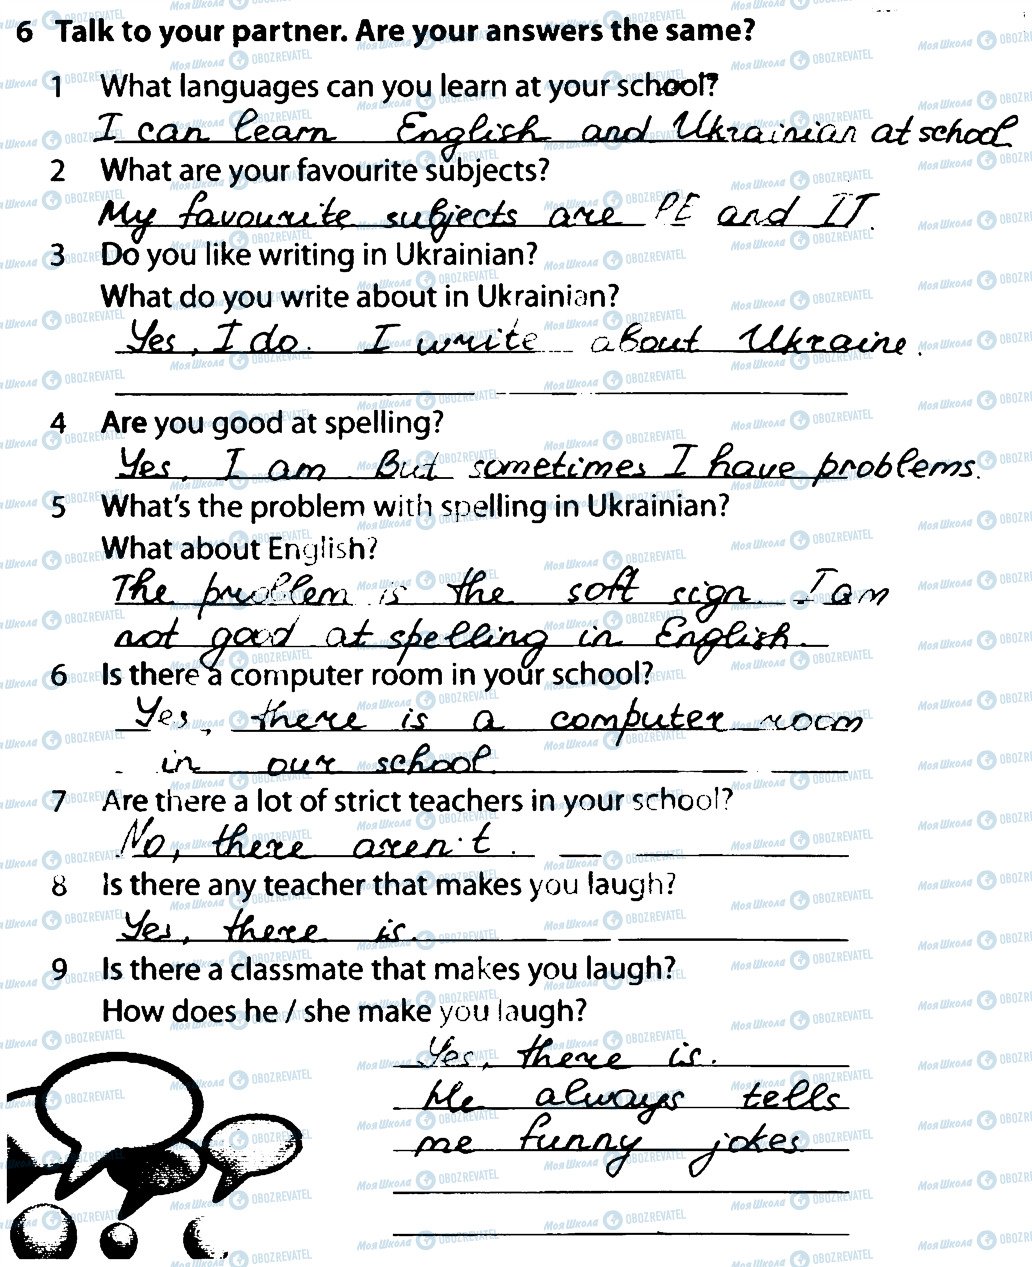 6 Talk to your partner. Are your answers the same?
1 What languages can you learn at your school?
I can learn English and Ukrainian at school
2 What are your favourite subjects?
My favourite subjects are PE and IT.
3 Do you like writing in Ukrainian?
What do you write about in Ukrainian?
Yes, I do. I write about Ukraine.
4 Are you good at spelling?
Yes, I am. But sometimes I have problems.
5 What's the problem with spelling in Ukrainian?
What about English?
The problem is the soft sign. I am
not good at spelling in English.
6 Is there a computer room in your school?
Yes, there is a computer room
in our school.
7 Are there a lot of strict teachers in your school?
No, there aren't.
8 Is there any teacher that makes you laugh?
Yes, there is.
9 Is there a classmate that makes you laugh?
How does he / she make you laugh?
Yes, there is.
He always tells
me funny jokes.